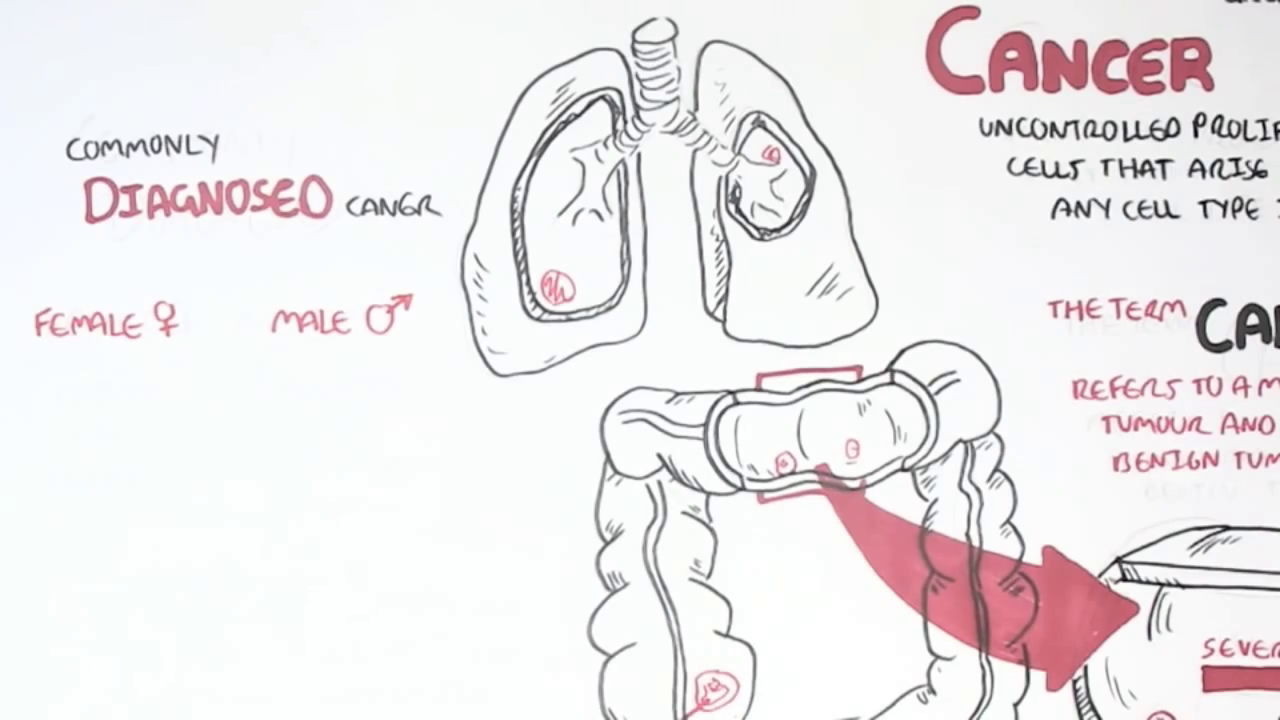 COMMONLY
DIAGNOSED CANCR
FEMALE ♀ MALE ♂
CANCER
UNCONTROLLED PROLIF
CELLS THAT ARISE
ANY CELL TYPE
THE TERM CA
REFERS TO A M
TUMOUR AND
BENIGN TUM
SEVER